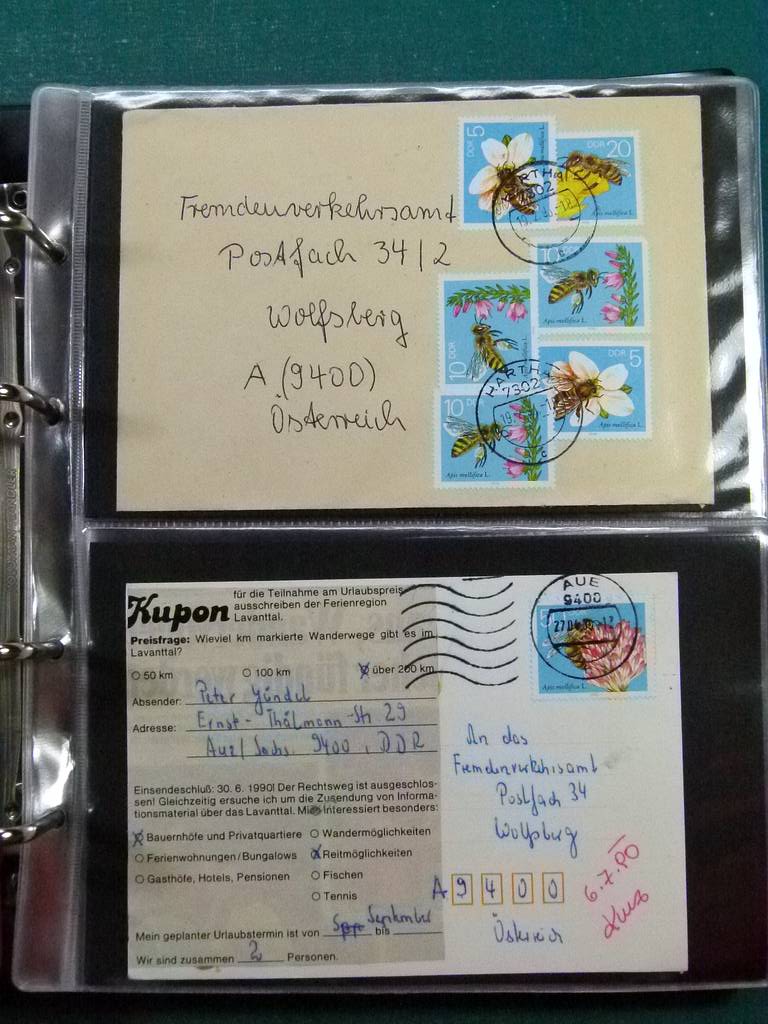 Fremdenverkehrsamt
Postfach 34/2
Wolfsberg
A (9400)
Österreich
DDR 5
DDR 20
Apis mellifica L.
HARTHA
7302
10
Apis mellifica L.
10 DDR
DDR 5
Apis mellifica L.
HARTHA
7302
c
10 DDR
Apis mellifica L.
Kupon
für die Teilnahme am Urlaubspreis-
ausschreiben der Ferienregion
Lavanttal.
Preisfrage: Wieviel km markierte Wanderwege gibt es im
Lavanttal?
50 km 100 km über 200 km
Absender: Peter
Adresse: Ernst-Thälmann-Str. 29
Aue/Sachs. 9400, DDR
Einsendeschluß: 30. 6. 1990! Der Rechtsweg ist ausgeschlos-
sen! Gleichzeitig ersuche ich um die Zusendung von Informa-
tionsmaterial über das Lavanttal. Interessiert besonders:
Bauernhöfe und Privatquartiere Wandermöglichkeiten
Ferienwohnungen/Bungalows Reitmöglichkeiten
Gasthöfe, Hotels, Pensionen Fischen
Tennis
Mein geplanter Urlaubstermin ist von September bis
Wir sind zusammen 2 Personen.
AUE
9400
5
Apis mellifica L.
An das
Fremdenverkehrsamt
Postfach 34
Wolfsberg
A 9400
Österreich
6.7.90